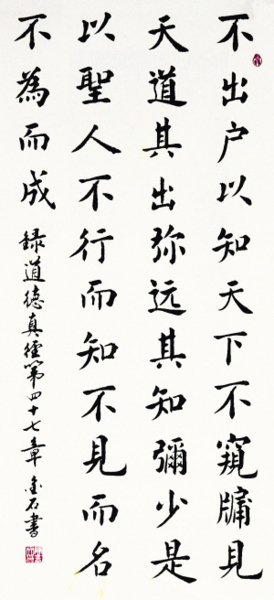 不出户以知天下不窺牖見
天道其出弥远其知彌少是
以聖人不行而知不見而名
不為而成
録道德真經第四十七章 金石書